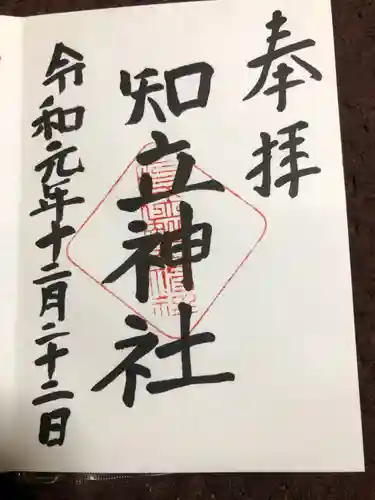 奉拝
知立神社
令和元年十二月二十二日